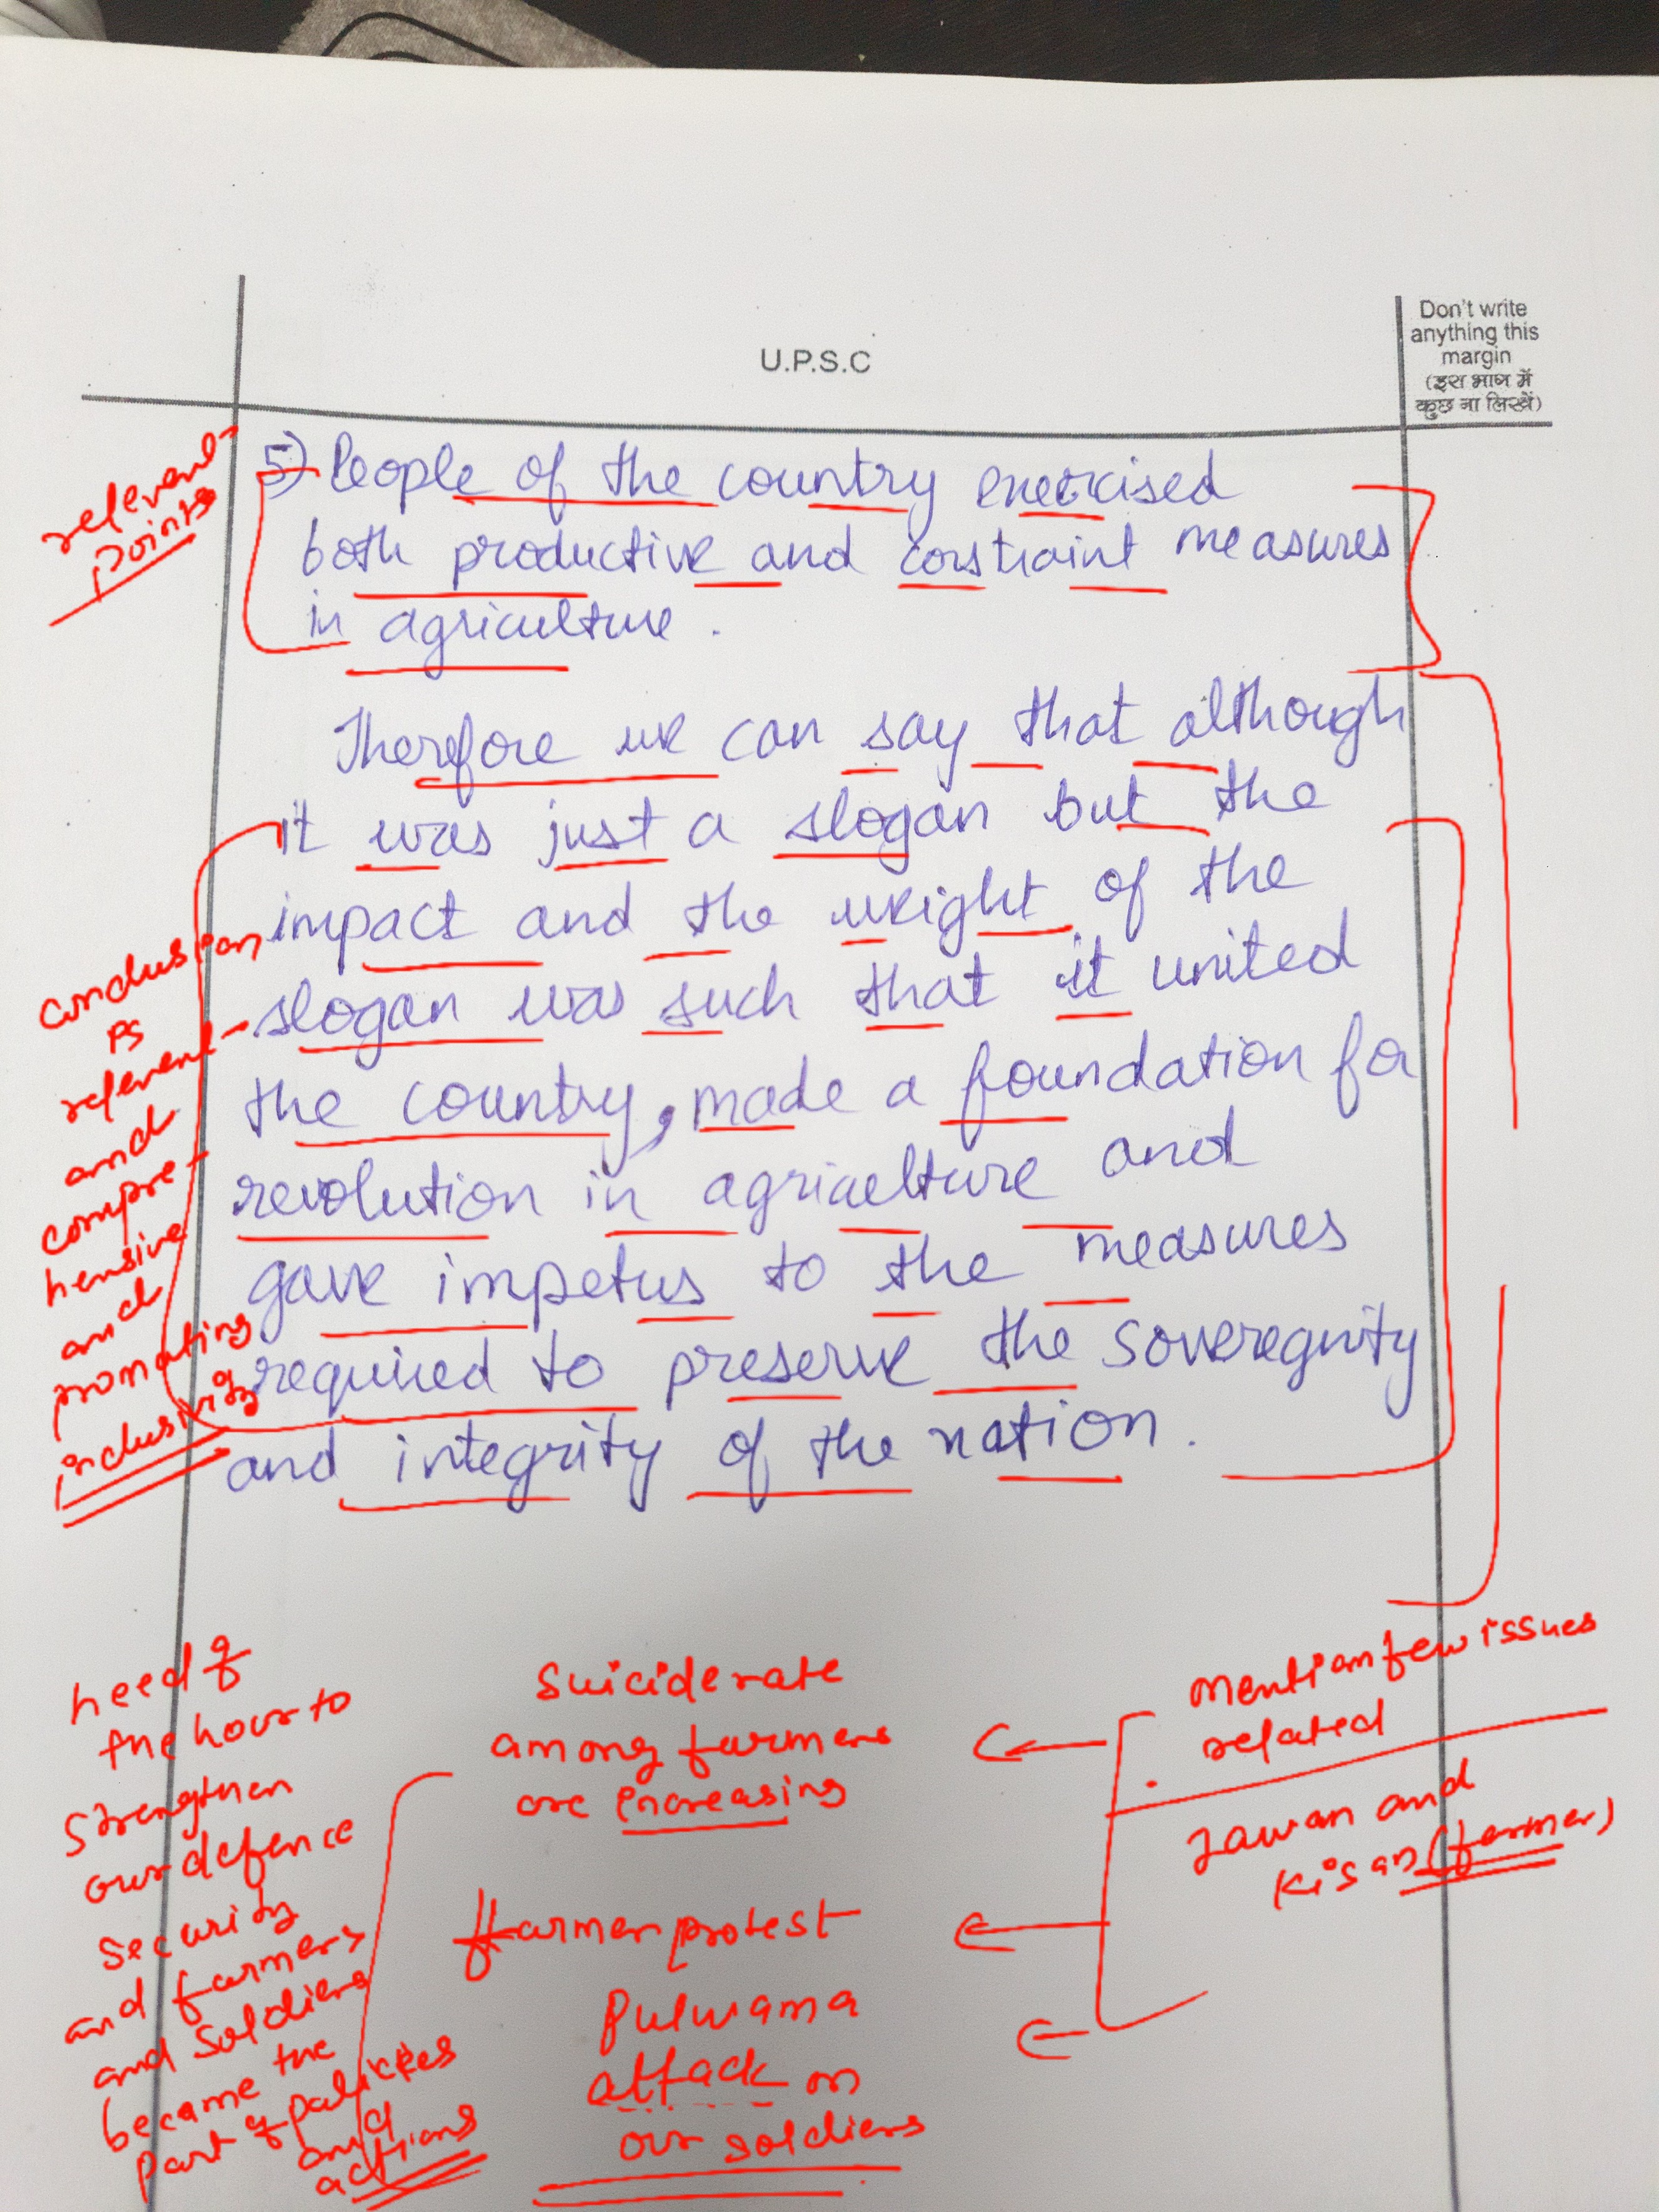 U.P.S.C
Don't write
anything this
margin
(इस भाग में
कुछ ना लिखें)
relevent
points
5) People of the country exercised
both productive and constraint measures
in agriculture.
Therefore we can say that although
it was just a slogan but the
impact and the weight of the
slogan was such that it united
the country, made a foundation for
revolution in agriculture and
gave impetus to the measures
required to preserve the sovereignity
and integrity of the nation.
conclusion
is
relevent
and
compre-
hensive
and
promoting
inclusivity
Mention few issues
related
Jawan and
Kisan (farmer)
Suicide rate
among farmers
are increasing
farmer protest
Pulwama
attack on
our soldiers
need of
the hour to
strengthen
our defence
security
and farmers
and soldiers
became the
part of policies
and
actions